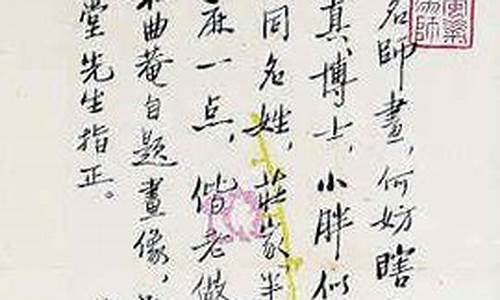 名師畫，何妨瞎
真、博士，小胖似
同名姓，莊家半
一点，偕老做
曲菴自題畫像，
堂先生指正。